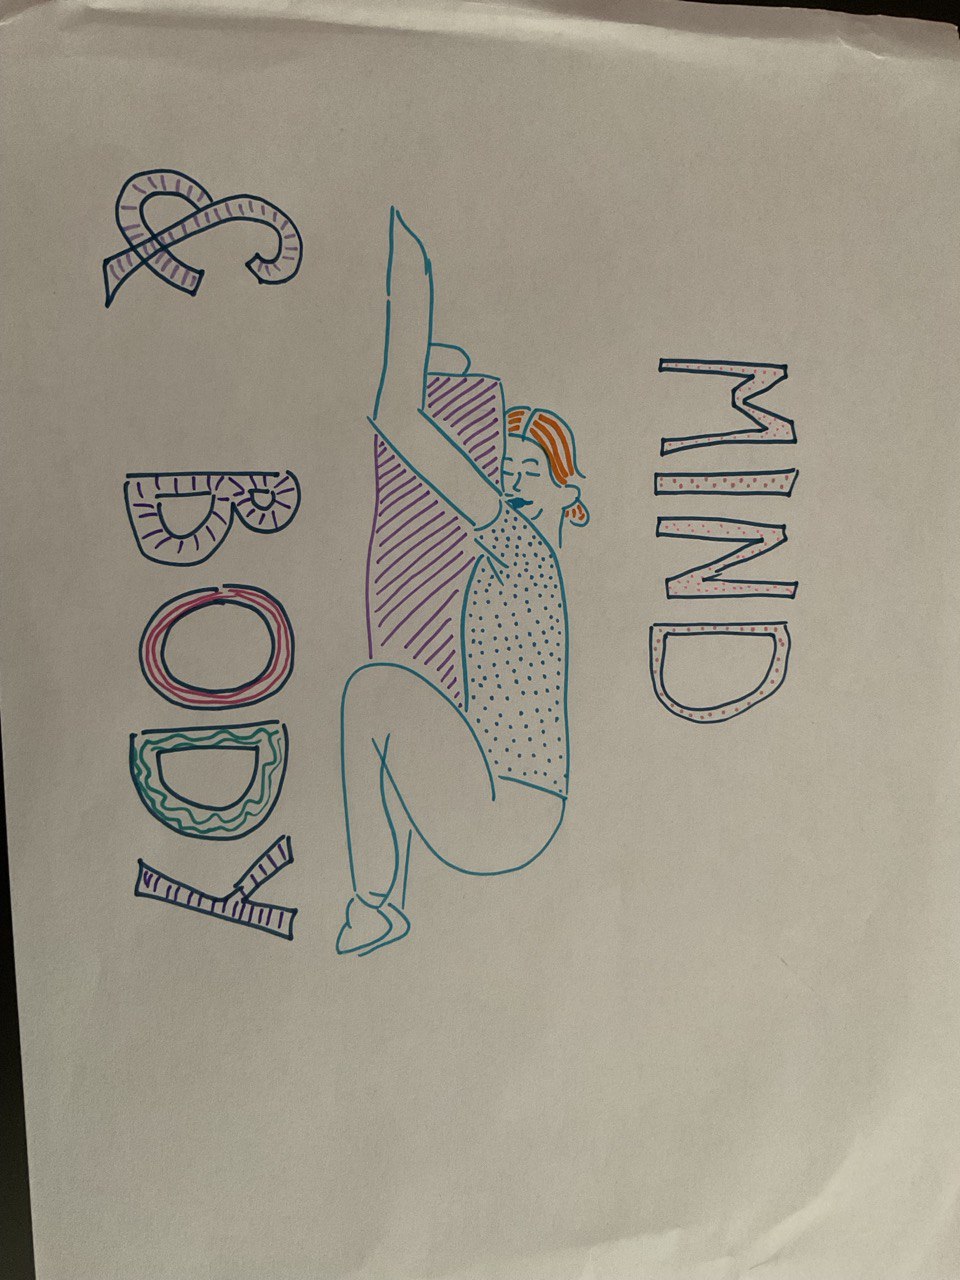 MIND
& BODY